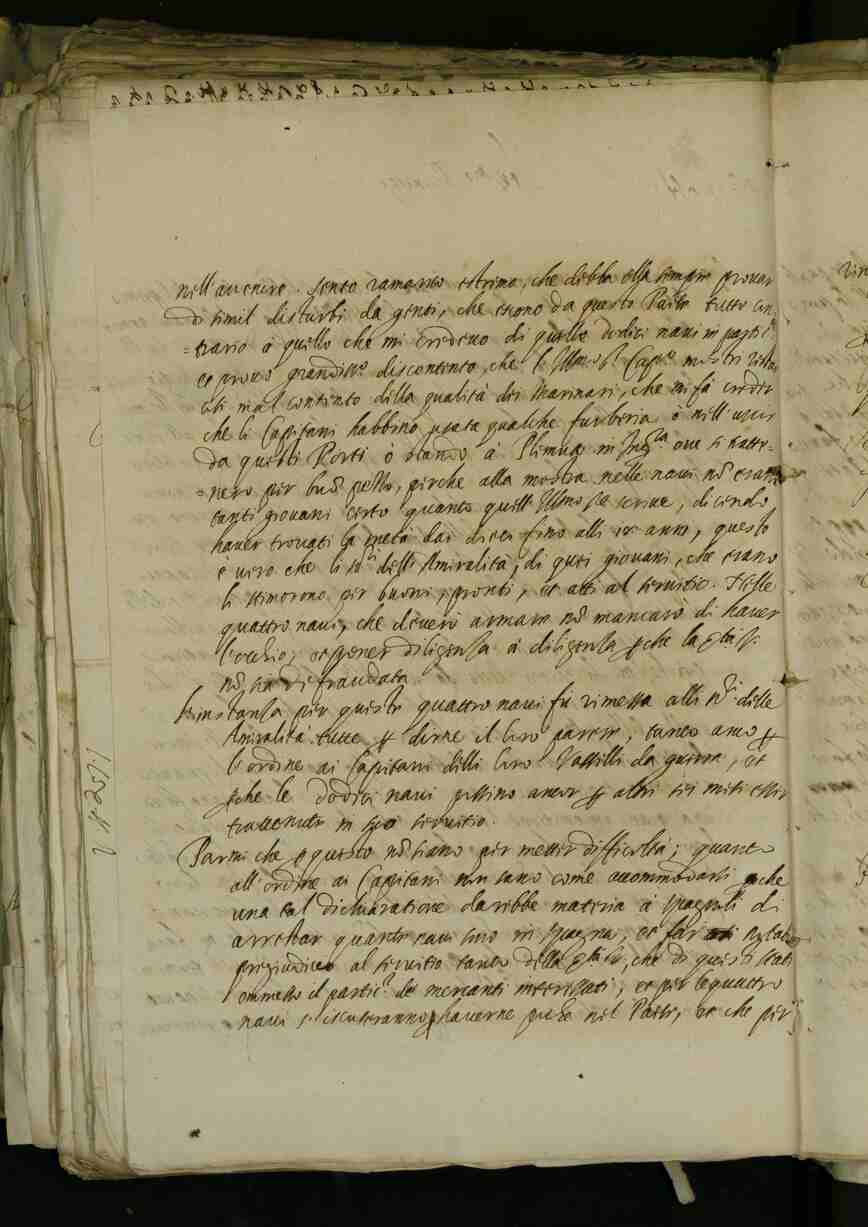 nell'avenire. sento ramarico estremo, che debba ella sempre provar
di simil disturbi da genti, che escono da questo Paese tutto con=
=trario à quello che mi credevo di quelle dodici navi in partic.re
et provo grandiss.o discontento, che l'Illmo s.r Cap.o mostri
mal contento della qualità dei Marinari, che mi fà creder
che li Capitani habbino usata qualche furberia ò nell'uscir
da questi Porti ò stando à Plimua in Ing.ra ove si tratte=
=nero per buon pezzo, perche alla mostra nelle navi nõ erano
tanti giovani certo quanto quell'Illmo s.re scrive, dicendo
haver trovati la metà dai dieci fino alli anni, questo
è vero che li ss.ri dell'Amiralità, di quei giovani, che erano
li stimorono per buoni, pronti, et atti al servitio. Nelle
quattro navi, che devero armare nõ mancarò di haver
l'occhio, et poner diligenza à diligenza perche la S.tà
nõ sia defraudata.
L'instanza per queste quattro navi fu rimessa alli ss.ri delle
Amiralità tutte per darne il loro parere, tanto anco per
l'ordine ai Capitani delli loro Vasselli da guerra, et
perche le dodici navi possino ancor per altri sei mesi esser
trattenute in suo servitio.
Parmi che per questo nõ siano per metter difficoltà; quanto
all'ordine ai Capitani non sano come accommodarsi perche
una tal dichiaratione darebbe materia à spagnoli di
arrestar quante navi sono in spagna, et far
pregiudicio al servitio tanto della S.tà, che di questi stati
ommesso il partic.re de mercanti interessati, et per le quattro
navi haverne nel Paese, et che per